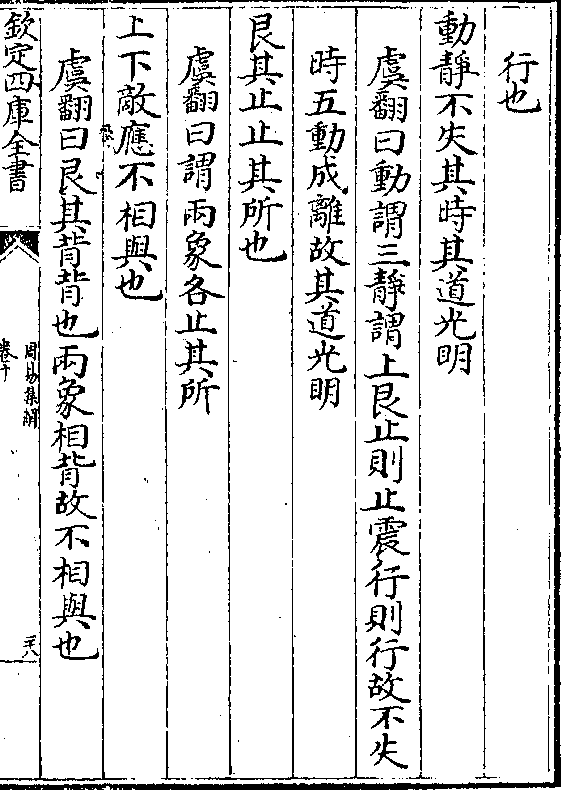 行也
動靜不失其時其道光明
虞翻曰動謂三靜謂上艮止則止震行則行故不失
時五動成離故其道光明
艮其止止其所也
虞翻曰謂兩象各止其所
上下敵應不相與也
虞翻曰艮其背背也兩象相背故不相與也
欽定四庫全書
周易集解
卷十